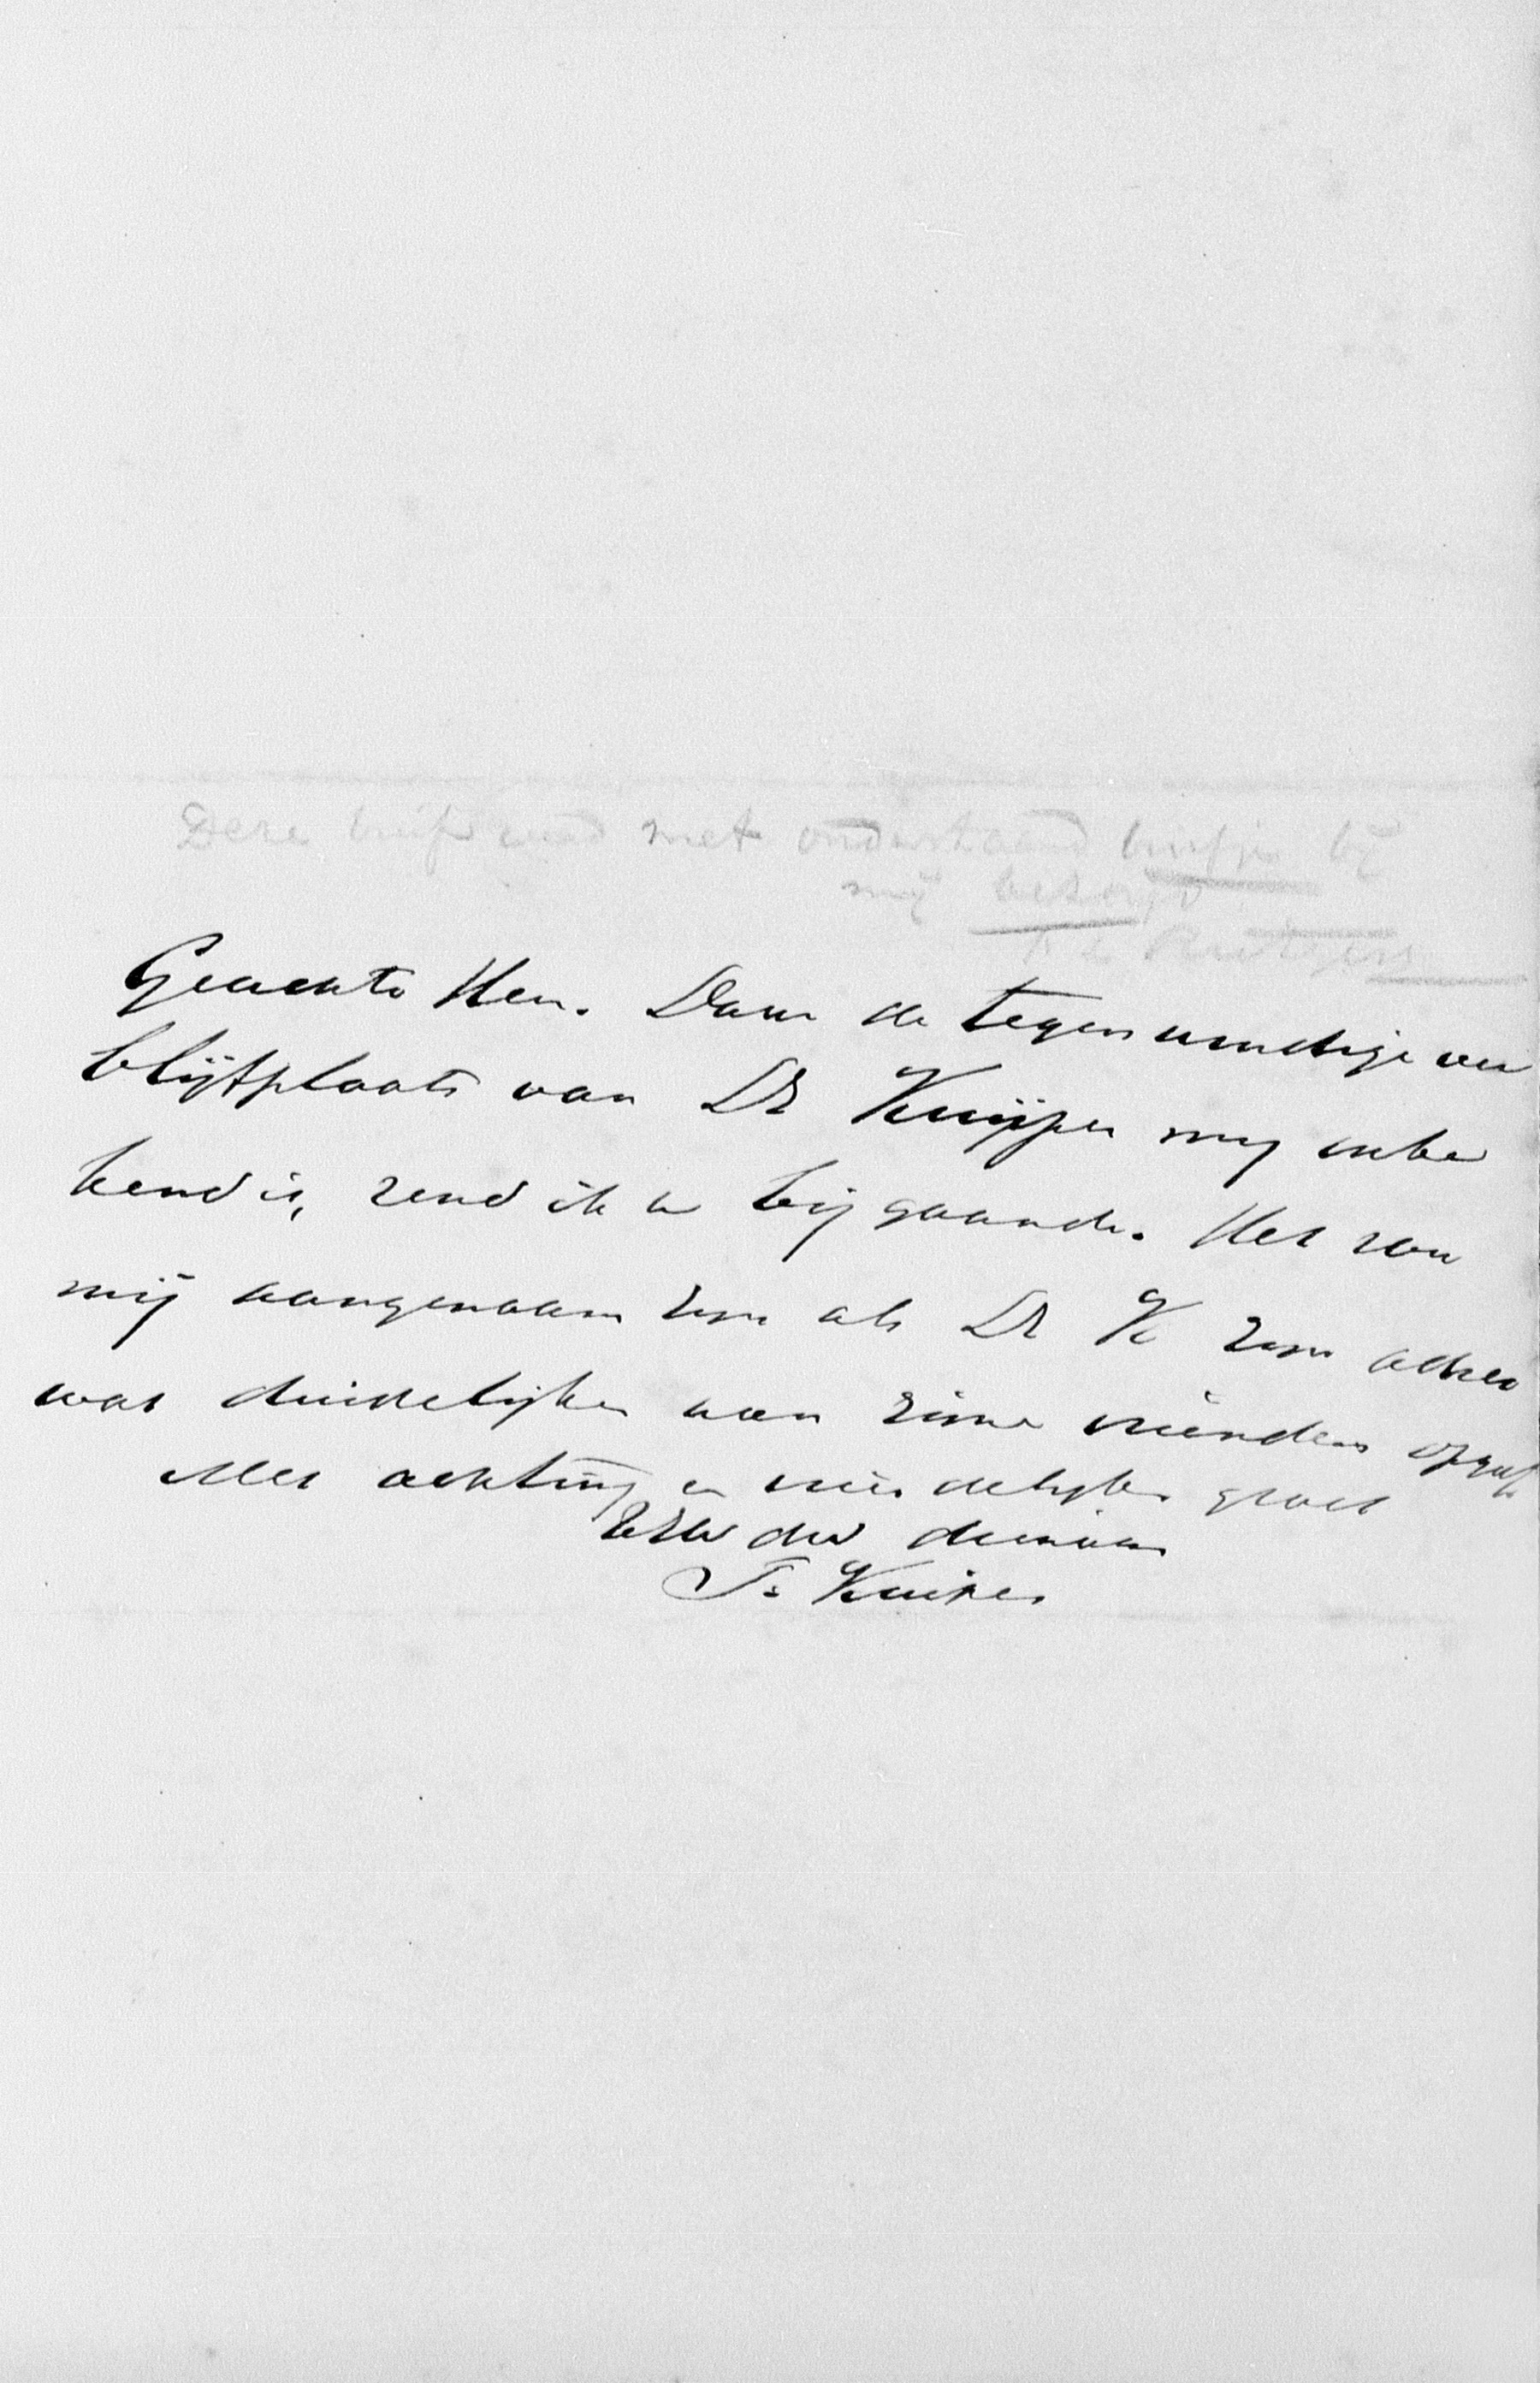 Deze brief werd met onderstaand briefje bij
mij bezorgd
F L Rutgers
Geachte Heer. Daar de tegenwoordige ver
blijfplaats van Dr Kuijper mij onbe
kend is, zend ik u bijgaande. Het zou
mij aangenaam zijn als Dr K zijn adres
wat duidelijker aan zijne vrienden opgaf.
Met achting en vriendelijken groet
UEw dw dienaar
Ts Kuiper